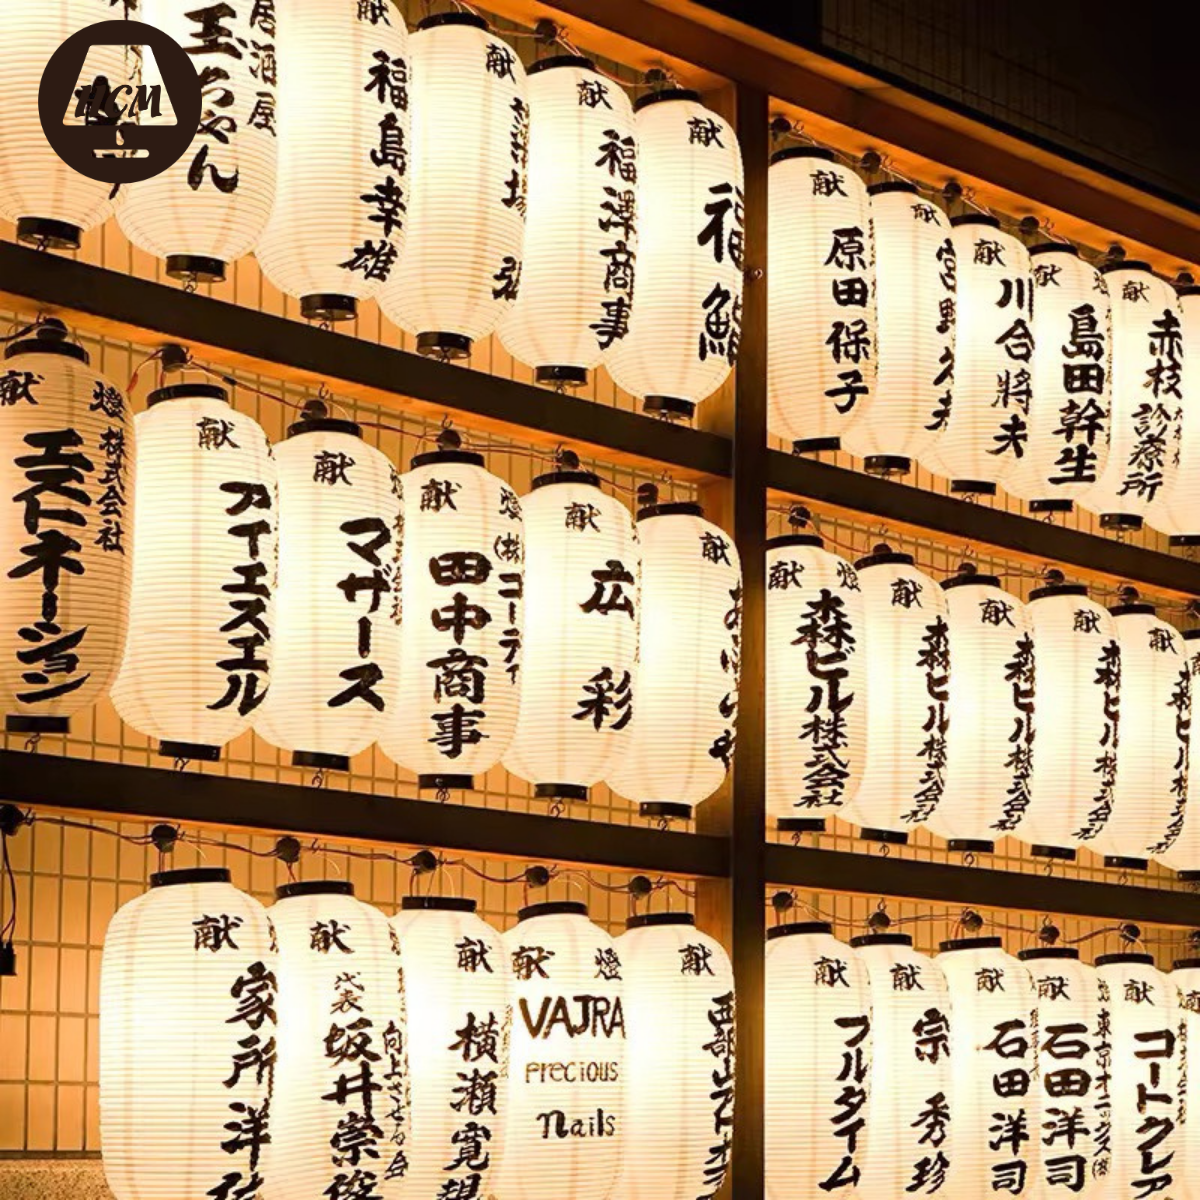 HCM
居酒屋
玉ちゃん
献
福島幸雄
献
献
福澤商事
献
福鮨
献
原田保子
献
献
川合將夫
献
島田幹生
献
赤枝
診療所
献
燈
株式会社
エストネーション
献
アイエスエル
献
マザース
献
燈
(株)コーティ
田中商事
献
広彩
献
献
燈
森ビル株式会社
献
森ビル株式会社
献
森ビル株式会社
献
森ビル株式会社
献
森ビル
献
家所洋
献
代表
坂井崇俊
向上させる会
献
横瀬寛
献
燈
VAJRA
Precious
nails
献
献
フルタイム
献
宗秀珍
献
石田洋司
献
石田洋司
献
コートクレア